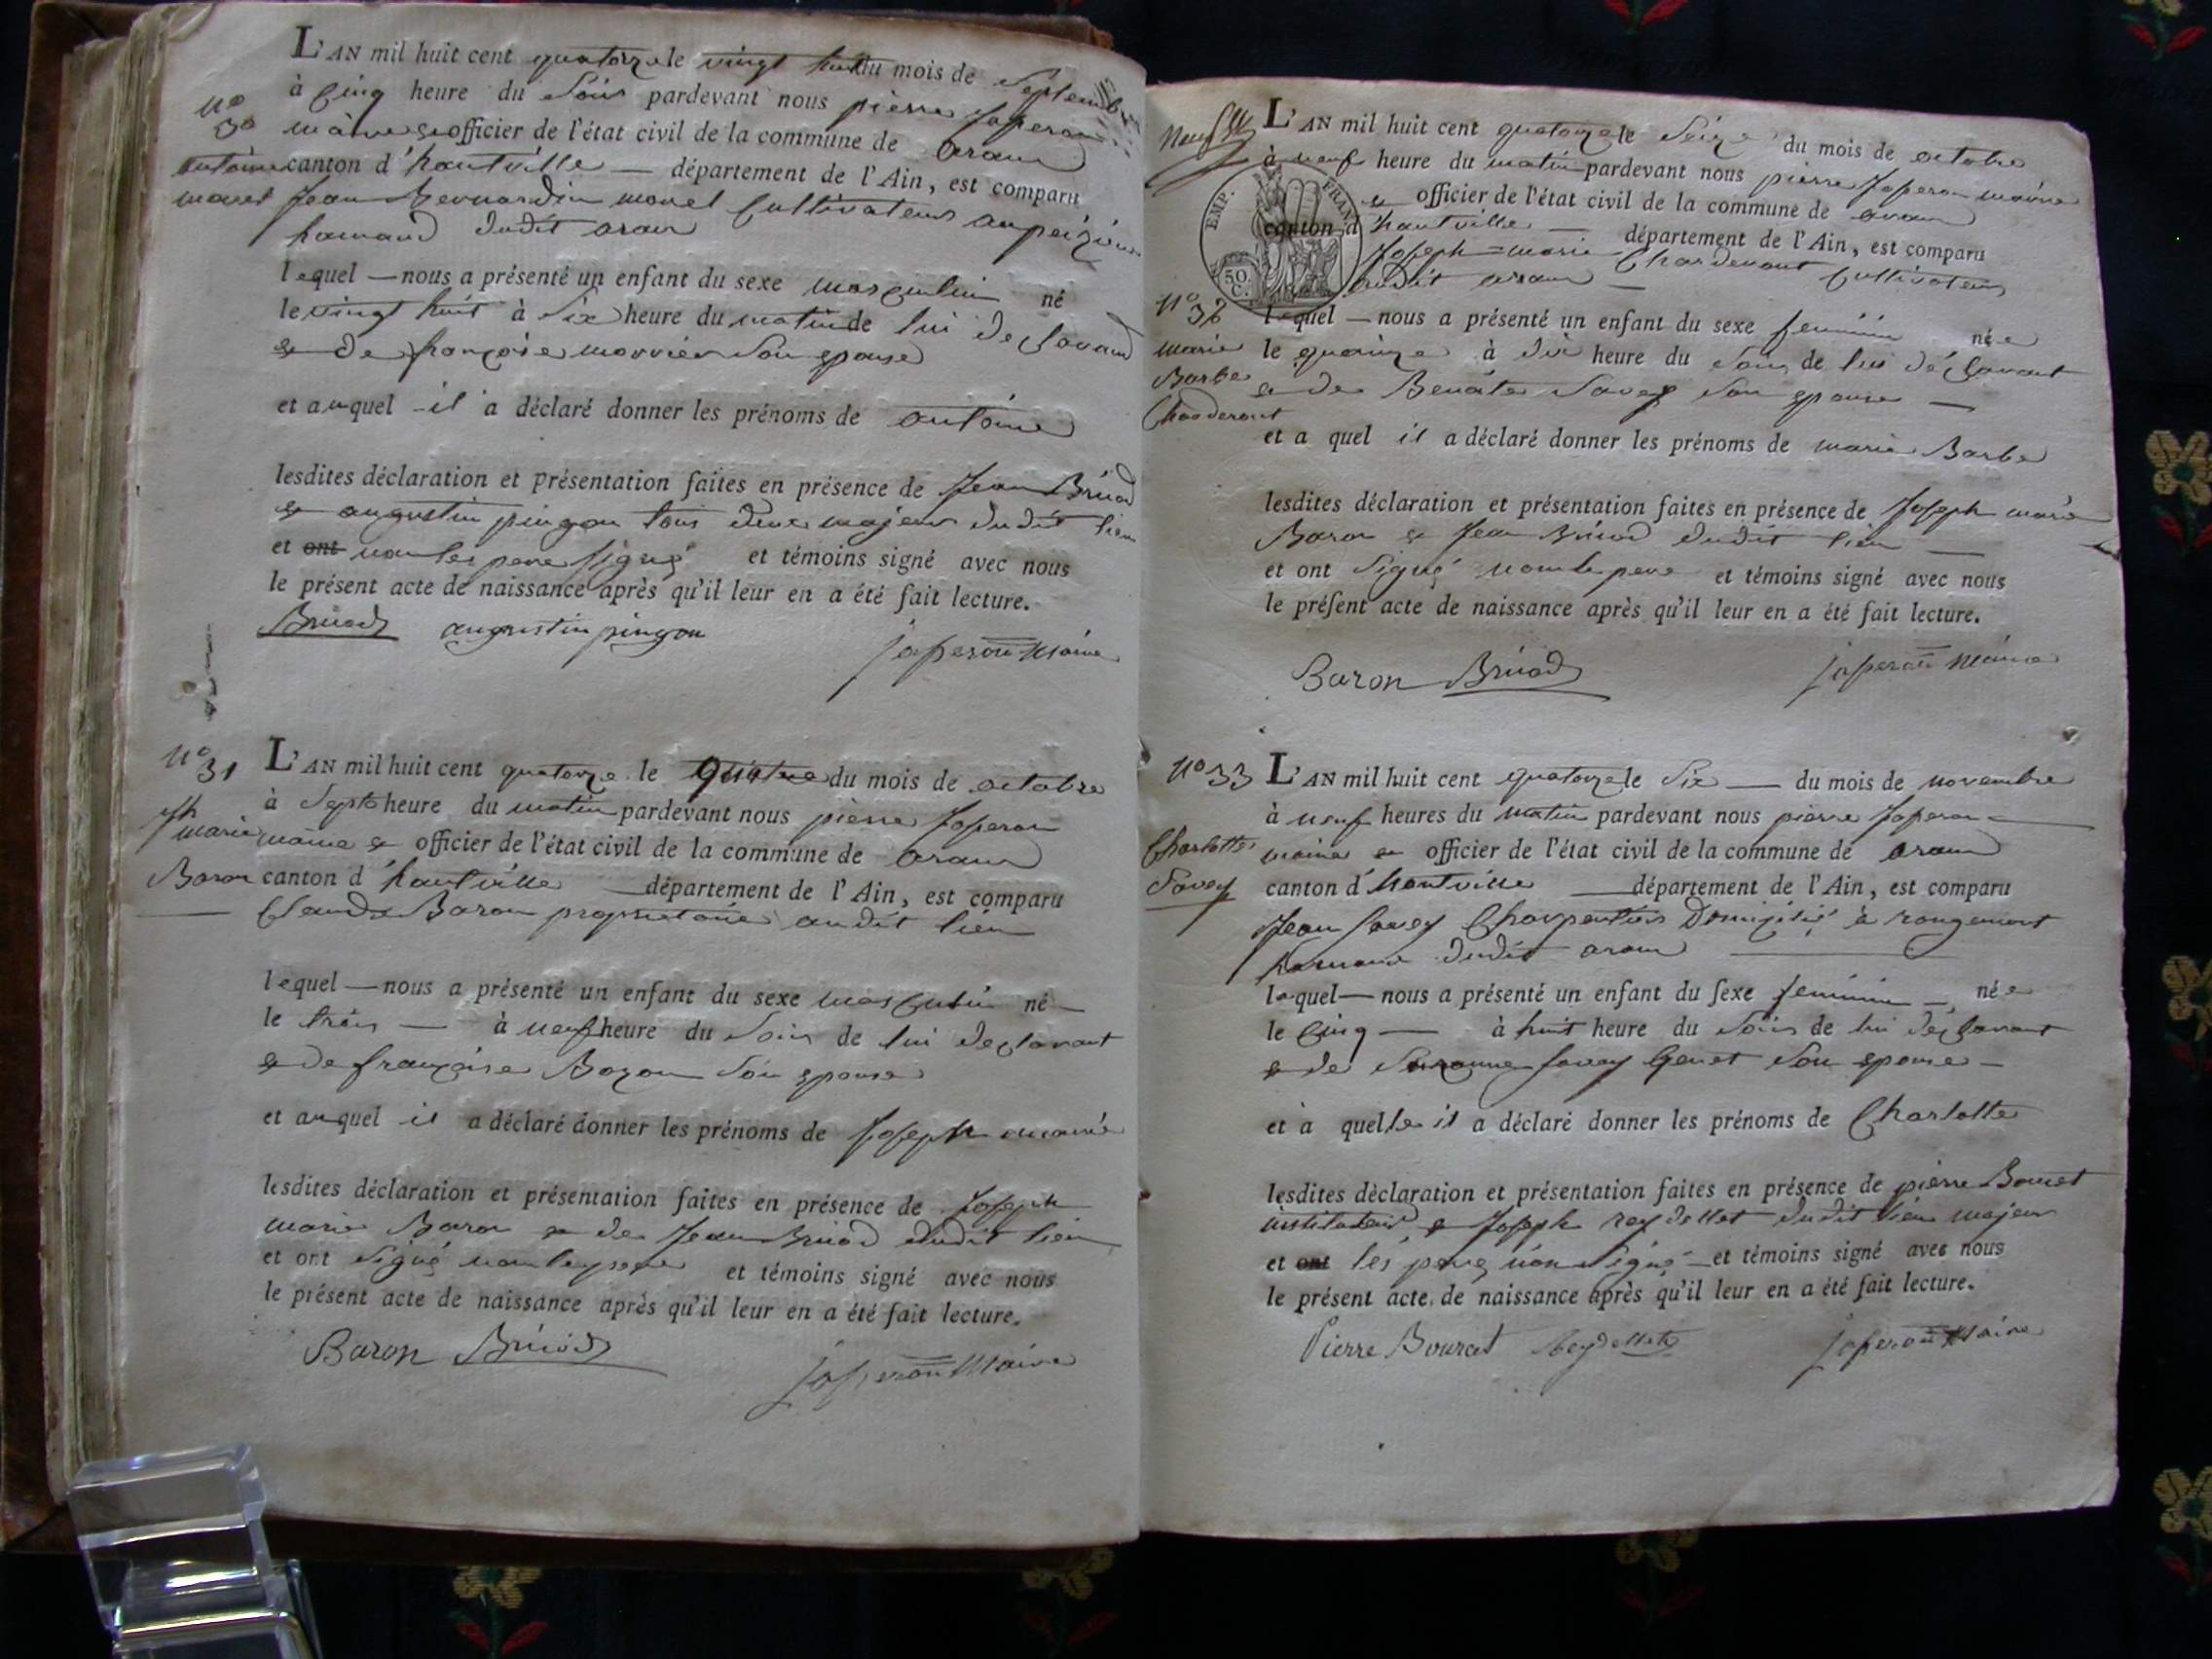 L'AN mil huit cent quatorze le vingt huit du mois de Septembre
à Cinq heure du Soir pardevant nous pierre Japeron
N° 30
maire & officier de l'état civil de la commune de aran
antoine
canton d'hautville — département de l'Ain, est comparu
moret
Jean Bernardin moret Cultivateur
hamaud dudit aran
lequel — nous a présenté un enfant du sexe masculin né
le vingt huit à Six heure du matin de lui declarand
& de françoise morrier Son epouse
et auquel il a déclaré donner les prénoms de antoine
lesdites déclaration et présentation faites en présence de Jean Bruod
& augustin pingon tous deux majeur dudit lieu
et ont non les pere signé et témoins signé avec nous
le présent acte de naissance après qu'il leur en a été fait lecture.
Bruod augustin pingon
japeron Maire
N° 31
L'AN mil huit cent quatorze le Quatre du mois de octobre
à Septe heure du matin pardevant nous pierre Japeron
jh marie
maire & officier de l'état civil de la commune de aran
Baron
canton d'hautville — département de l'Ain, est comparu
Claude Baron propriétaire audit lieu
lequel — nous a présenté un enfant du sexe masculin né —
le trois — à neuf heure du Soir de lui declarant
& de françoise Bozon Son epouse
et auquel il a déclaré donner les prénoms de Joseph marie
lesdites déclaration et présentation faites en présence de Joseph
marie Baron & de Jean Bruod dudit lieu
et ont signé non le pere et témoins signé avec nous
le présent acte de naissance après qu'il leur en a été fait lecture.
Baron Bruod
japeron Maire
L'AN mil huit cent quatorze le Seize du mois de octobre
à neuf heure du matin pardevant nous pierre Japeron maire
& officier de l'état civil de la commune de aran
EMP. FRAN
50 C.
canton d'hautville — département de l'Ain, est comparu
Joseph = marie Charderont Cultivateur
dudit aran —
N° 32
lequel — nous a présenté un enfant du sexe feminin née
marie
le quainze à dix heure du Soir de lui déclarant
Barbe
& de Benoite Savey Son epouse —
Charderont
et a quel il a déclaré donner les prénoms de marie Barbe
lesdites déclaration et présentation faites en présence de Joseph marie
Baron & Jean Bruod dudit lieu —
et ont Signé non le pere et témoins signé avec nous
le présent acte de naissance après qu'il leur en a été fait lecture.
Baron Bruod
japeron Maire
N° 33
L'AN mil huit cent quatorze le Six — du mois de novembre
à neuf heures du matin pardevant nous pierre Japeron —
Charlotte
maire & officier de l'état civil de la commune de aran
Savey
canton d'hautville — département de l'Ain, est comparu
Jean Savey Charpentier Domicilié à rougemont
hamaud dudit aran
lequel — nous a présenté un enfant du sexe feminin — née
le Cinq — à huit heure du Soir de lui déclarant
& de Suzanne Savey Genet Son epouse —
et à quelle il a déclaré donner les prénoms de Charlotte
lesdites déclaration et présentation faites en présence de pierre Bourcet
instituteur & Joseph reydellet dudit lieu majeur
et ont les pere non Signé — et témoins signé avec nous
le présent acte de naissance après qu'il leur en a été fait lecture.
Pierre Bourcet Reydellet
japeron Maire